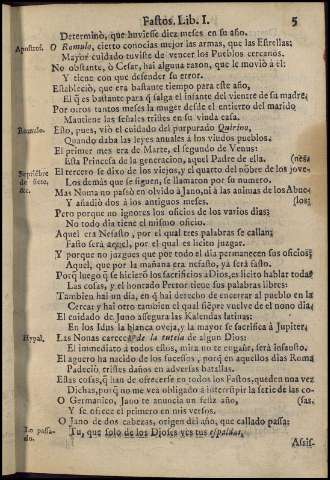 Fastos. Lib. I. 5
Determinò, que huviesse diez meses en su año.
Apostrof. O Romulo, cierto conocias mejor las armas, que las Estrellas;
Mayor cuidado tuviste de vencer los Pueblos cercanos.
No obstante, ò Cesar, hai alguna razon, que le moviò à el;
Y tiene con que defender su error.
Estableciò, que era bastante tiempo para este año,
El q̃ es bastante para q̃ salga el infante del vientre de su madre;
Por otros tantos meses la muger desde el entierro del marido
Mantiene las señales tristes en su viuda casa.
Romulo. Esto, pues, viò el cuidado del purpurado Quirino,
Quando daba las leyes anuales à los viudos pueblos.
El primer mes era de Marte, el segundo de Venus:
Esta Princesa de la generacion, aquel Padre de ella. (nes;
Septiẽbre El tercero se dixo de los viejos, y el quarto del nõbre de los jove-
de siete, Los demàs que se siguen, se llamaron por su numero.
&c. Mas Noma no passò en olvido à Jano, ni à las animas de los Abue-
Y añadiò dos à los antiguos meses. (los;
Pero porque no ignores los oficios de los varios dias;
No todo dia tiene el mismo oficio.
Aquel era Nefasto, por el qual tres palabras se callan;
Fasto serà aquel, por el qual es licito juzgar.
Y porque no juzgues que por todo el dia permanecen sus oficios;
Aquel, que por la mañana era nefasto, yà serà fasto.
Porq̃ luego q̃ se hicierõ los sacrificios à Dios, es licito hablar todas
Las cosas, y el honrado Pretor tiene sus palabras libres:
Tambien hai un dia, en q̃ hai derecho de encerrar al pueblo en la
Cerca; y hai otro tambien el qual siẽpre vuelve de el nono dia;
El cuidado de Juno assegura las Kalendas latinas:
En los Idus la blanca oveja, y la mayor se sacrifica à Jupiter;
Hypal. Las Nonas carecen de la tutela de algun Dios:
El inmediato à todos estos, mira no te engañe, serà infausto.
El aguero ha nacido de los sucessos, porq̃ en aquellos dias Roma
Padeciò tristes daños en adversas batallas.
Estas cosas, q̃ han de ofrecerse en todos los Fastos, queden una vez
Dichas, porq̃ no me vea obligado à interrumpir la serie de las co-
O Germanico, Jano te anuncia un feliz año, (sas.
Y se ofrece el primero en mis versos.
O Jano de dos cabezas, origen del año, que callado passa;
Lo passa- Tu, que solo de los Dioses ves tus espaldas,
do.
Assis-